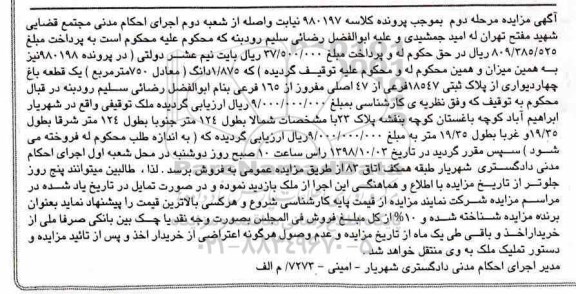 آگهی مزایده مرحله دوم بموجب پرونده کلاسه ۹۸۰۱۹۷ نیابت واصله از شعبه دوم اجرای احکام مدنی مجتمع قضایی
شهید مفتح تهران له امید جمشیدی و علیه ابوالفضل رضائی سلیم رودبنه که محکوم علیه محکوم است به پرداخت مبلغ
۸۰۹/۳۸۵/۵۲۵ ریال در حق محکوم له و پرداخت مبلغ ۳۷/۵۰۰/۰۰۰ ریال بابت نیم عشر دولتی ( در پرونده ۹۸۰۱۹۸نیز
به همین میزان و همین محکوم له و محکوم علیه توقیف گردیده ) که ۱/۸۷۵دانگ ( معادل ۷۵۰مترمربع ) یک قطعه باغ
چهاردیواری از پلاک ثبتی ۱۸۵۴۷فرعی از ۴۷ اصلی مفروز از ۱۶۵ فرعی بنام ابوالفضل رضائی سلیم رودبنه در قبال
محکوم به توقیف که وفق نظریه ی کارشناسی بمبلغ ۹/۰۰۰/۰۰۰/۰۰۰ ریال ارزیابی گردیده ملک توقیفی واقع در شهریار
ابراهیم آباد کوچه باغستان کوچه بنفشه پلاک ۲۳با مشخصات شمالا بطول ۱۲۴ متر جنوبا بطول ۱۲۴ متر شرقا بطول
۱۹/۳۵و غربا بطول ۱۹/۳۵ متر به مبلغ ۹/۰۰۰/۰۰۰/۰۰۰ریال ارزیابی گردیده که ( به اندازه طلب محکوم له فروخته می
شود ) سپس مقرر گردید در تاریخ ۱۳۹۸/۱۰/۰۳ راس ساعت ۱۰ صبح روز دوشنبه در محل شعبه اول اجرای احکام
مدنی دادگستری شهریار طبقه همکف اتاق ۸۳از طریق مزایده عمومی به فروش برسد . لذا ، طالبین میتوانند پنج روز
جلوتر از تاریخ مزایده با اطلاع و هماهنگی این اجرا از ملک بازدید نموده و در صورت تمایل در تاریخ یاد شده در
مراسم مزایده شرکت نمایند مزایده از قیمت پایه کارشناسی شروع و هرکسی بالاترین قیمت را پیشنهاد نماید بعنوان
برنده مزایده شناخته شده و ۱۰% از کل مبلغ فروش فی المجلس بصورت وجه نقد یا چک بین بانکی صرفا ملی از
خریداراخذ و باقی طی یک ماه از تاریخ مزایده و عدم وصول هرگونه اعتراضی از خریدار اخذ و پس از تائید مزایده و
دستور تملیک ملک به وی منتقل خواهد شد.
مدیر اجرای احکام مدنی دادگستری شهریار - امینی - ۷۲۷۳/ م الف